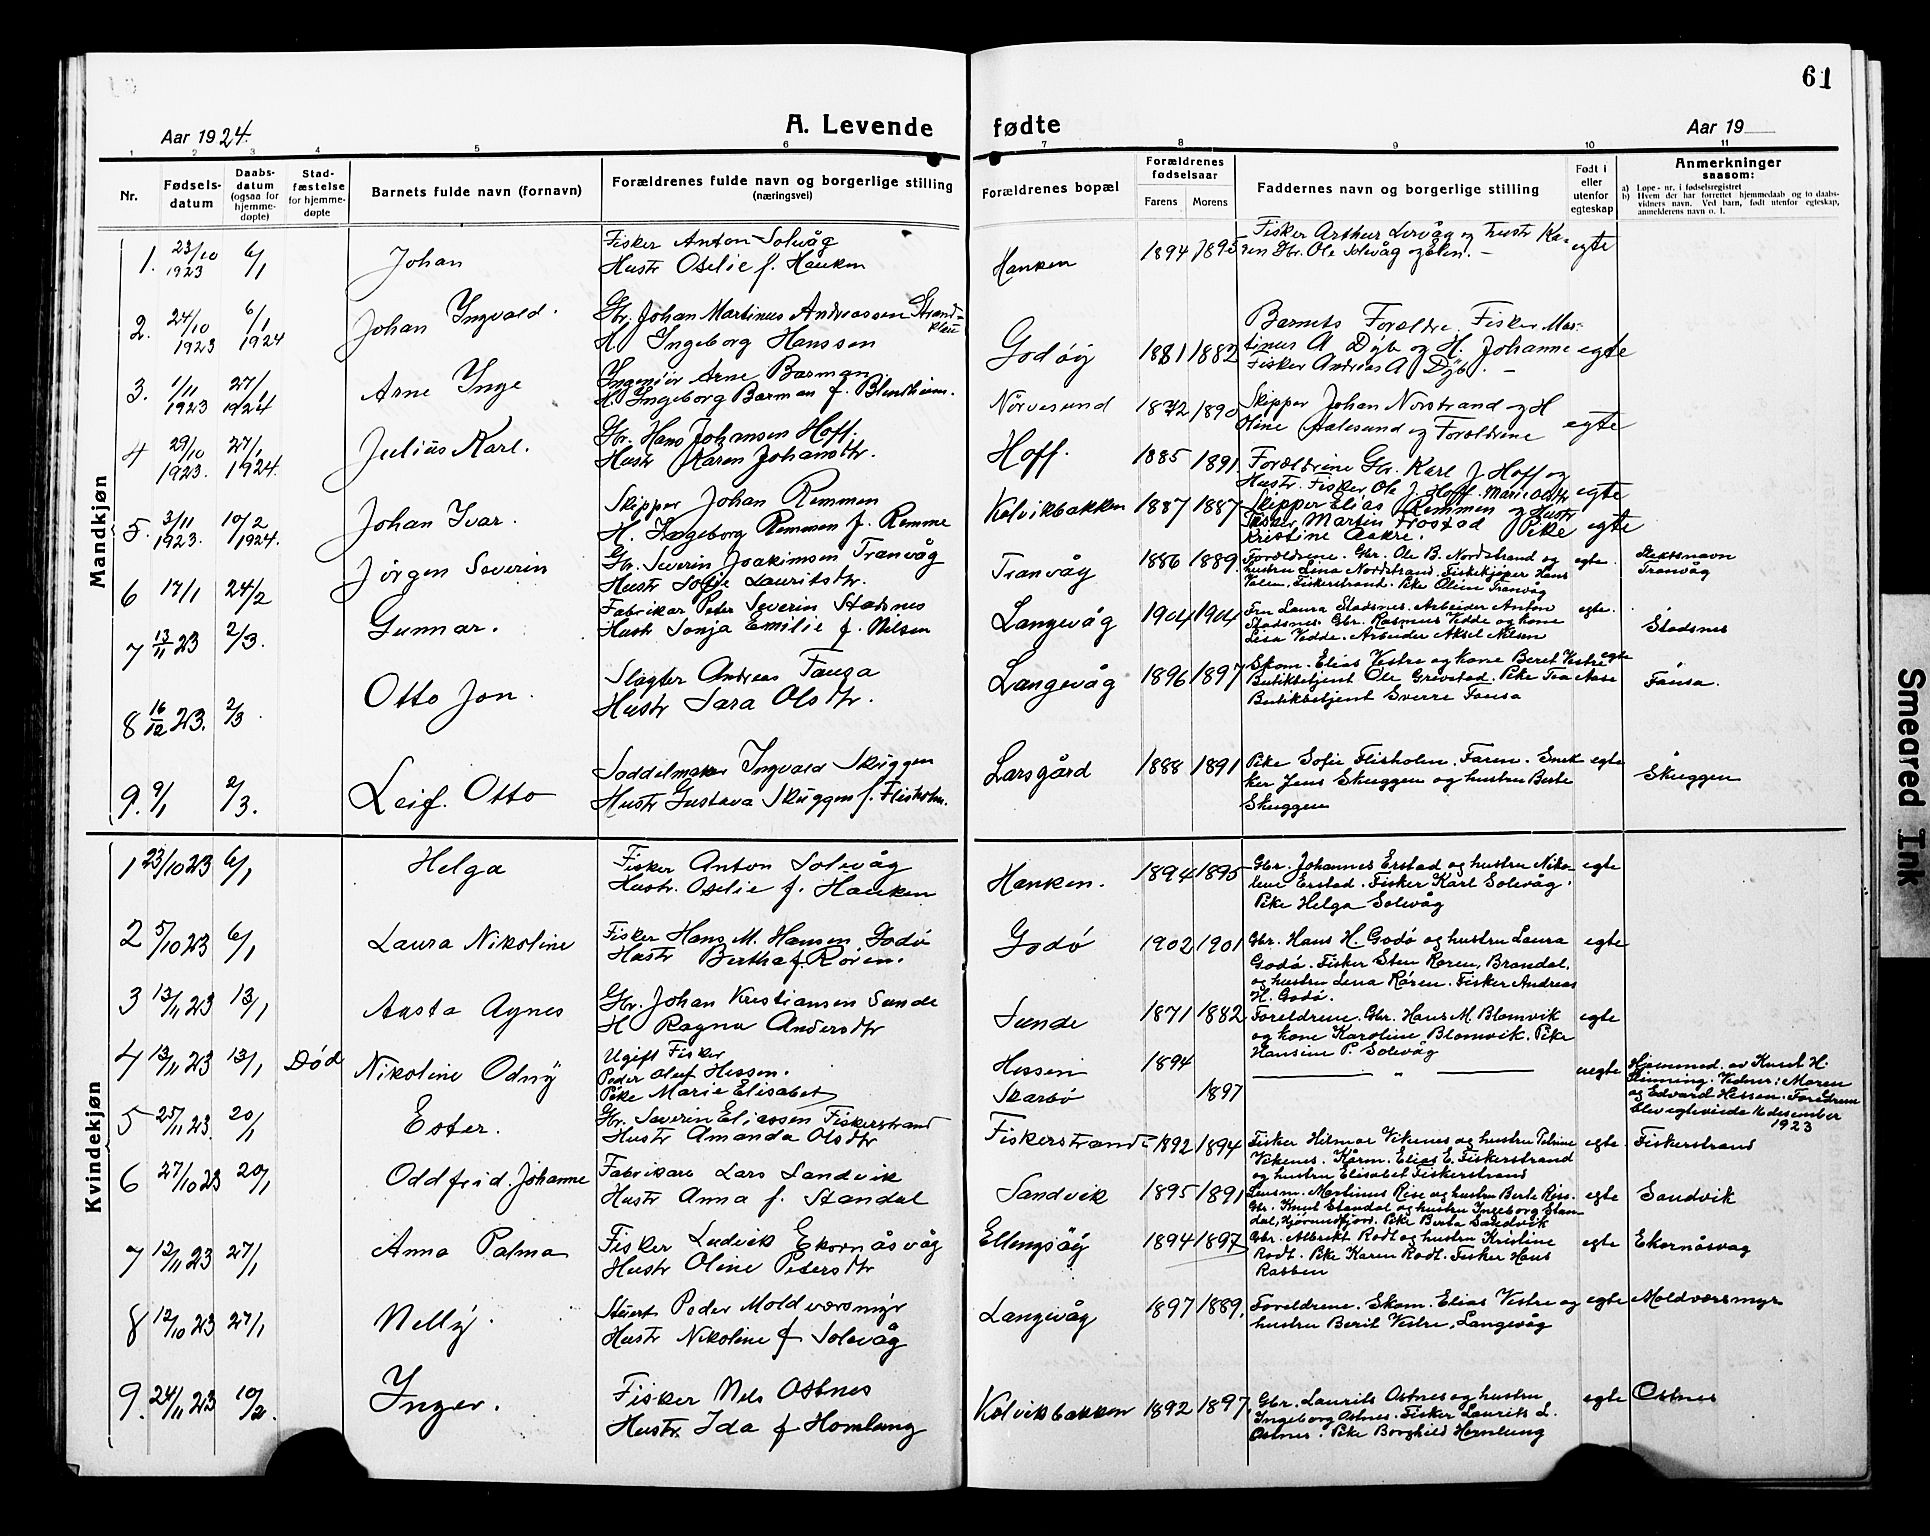 61
Aar 1924.
A. Levende
fødte
Aar 19
1 2 3 4 5 6 7 8 9 10 11
Nr.
Fødsels-
datum
Daabs-
datum
(ogsaa for
hjemme-
døpte)
Stad-
fæstelse
for hjemme-
døpte
Barnets fulde navn (fornavn)
Forældrenes fulde navn og borgerlige stilling
(næringsvei)
Forældrenes bopæl
Forældrenes
fødselsaar
Farens Morens
Faddernes navn og borgerlige stilling
Født i
eller
utenfor
egteskap
Anmerkninger
saasom:
a) Løpe-nr. i fødselsregistret
b) Hvem der har forrettet hjemmedaab og to daabs-
vidners navn. Ved barn, født utenfor egteskap,
anmelderens navn o. l.
Mandkjøn
1. 23/10 1923 6/1 Johan
Fisker Anton Solevåg
Hustr Oselie f. Hauken
Hauken 1894 1895
Fisker Arthur Lervåg og hustr Ka-
ren Gbr. Ole Solevåg og Elen. –
egte
2. 24/10 1923 6/1 1924 Johan Ingvald.
Gbr. Johan Martinus Andreassen Strand-
H. Ingeborg Hanssen
Godøy 1881 1882
Barnets Foreldre. Fisker Mar-
tinus A Dyb og H. Johanne
Fisker Andreas A Dyb. –
egte
3. 1/11 1923 27/1 1924 Arne Inge
Ingeniør Arne Barman.
H. Ingeborg Barman f. Blindheim.
Nørvesund 1872 1890
Skipper Johan Norstrand og H
Oline Aalesund og Foreldrene
egte
4 29/10 1923. 27/1 1924. Julius Karl.
Gbr. Hans Johansen Hoff.
Hustr Karen Johansdtr.
Hoff. 1885 1891
Foreldrene Gbr. Karl J. Hoff og
Hustr. Fisker Ole J. Hoff. Marie Olsdtr
egte
5. 3/11 1923. 10/2 1924. Johan Ivar.
Skipper Johan Remmen
H. Ingeborg Remmen f. Remme
Kolvikbakken 1887 1887
Skipper Elias Remmen og Hustr
Fisker Marten Frostad Pike
Kristine Aakre.
egte
6 17/1 24/2 Jørgen Severin
Gbr. Severin Joakimsen Tranvåg
Hustr Sofie Lauritsdtr.
Tranvåg 1886 1889.
Foreldrene. Gbr. Ole B. Nordstrand og
hustru Lina Nordstrand. Fiskekjøper Hans
Veen, Fiskerstrand. Pike Oline Tranvåg
egte.
Slektsnavn
Tranvåg
7 13/11 23 2/3. Gunnar.
Fabrikar Peter Severin Stadsnes
Hustr Sonja Emilie f. Nilsen
Langevåg 1904 1904
Fru Laura Stadsnes. Arbeider Anton
Stadsnes. Gbr. Rasmus Vedde og kone
Lisa Vedde. Arbeider Aksel Nilsen
egte.
Stadsnes
8 16/12 23. 2/3. Otto Jon.
Slagter Andreas Fausa
Hustr Sara Olsdtr.
Langevåg 1896 1897
Skom. Elias Vestre og kone Beret Vestre
Butikbetjent Ole Grevstad. Pike Tea Aase
Butikbetjent Sverre Fausa
egte
Fausa.
9. 9/1 2/3. Leif. Otto
Saddelmaker Ingvald Skuggen
Hustr Gustava Skuggen f. Flisholm.
Larsgård 1888 1891
Pike Sofie Flisholm. Faren. Snek
ker Jens Skuggen og hustru Berte
Skuggen
egte
Skuggen
Kvindekjøn
1 23/10 23 6/1 Helga
Fisker Anton Solevåg
Hustr. Oselie f. Hauken
Hauken. 1894 1895
Gbr. Johannes Erstad og hustru Niko-
line Erstad. Fisker Karl Solevåg.
Pike Helga Solevåg
egte
2 5/10 23 6/1 Laura Nikoline
Fisker Hans M. Hansen Godø
Hustr Bertha f. Røren.
Godø 1902 1901
Gbr. Hans H. Godø og hustru Laura
Godø. Fisker Sten Røren, Brandal,
og hustru Lena Røren. Fisker Andreas
H. Godø.
egte
3 13/11 23 13/1 Aasta Agnes
Gbr. Johan Kristiansen Sunde
H Ragna Andersdtr
Sunde 1871 1882
Foreldrene. Gbr. Hans M. Blomvik
og kone Karoline Blomvik. Pike
Hansine P. Solevåg
egte
4 13/11 23 13/1 Død Nikoline Odny
Ugift Fisker
Peder Oluf Hessen.
Pike Marie Elisabet
Hessen 1894
Skarbø 1897
— „ —
uegte
Hjemmed. av Knut H.
Vidner: Maren
og Edvard Hessen. Foreldrene
blev egteviede 16 desember
1923
5 25/11 23. 20/1 Ester.
Gbr. Severin Eliassen Fiskerstrand
Hustr Amanda Olsdtr
Fiskerstrand 1892 1894
Fisker Hilmar Vikenes og hustru Petrine
Vikenes. Kårm. Elias E. Fiskerstrand
og hustru Elisabet Fiskerstrand
egte
Fiskerstrand
6 27/10 23 20/1 Oddfrid. Johanne
Fabrikare Lars Sandvik
Hustr Anna f. Standal
Sandvik 1895 1891
Lensm. Martinus Rise og hustru Berte Rise.
Gbr. Knut Standal og hustru Ingeborg Stan-
dal, Hjørundfjord. Pike Berta Sandvik
egte
Sandvik
7 12/11 23 27/1 Anna Palma
Fisker Ludvik Ekornåsvåg
Hustr Oline Petersdtr
Ellingsøy 1894 1897
Gbr. Albrikt Rødt og hustru Kristine
Rødt. Pike Karen Rødt. Fisker Hans
Rabben
egte
Ekornåsvag
8 12/10 23 27/1 Nelly.
Stuert Peder Moldværsmyr
Hustr Nikoline f Solevåg
Langevåg 1897 1889.
Foreldrene. Skom. Elias Vestre og
hustru Berit Vestre, Langevåg
egte
Moldværsmyr
9. 24/11 23 10/2. Inger.
Fisker Nels Ostnes
Hustr. Ida f Homlung
Kolvikbakken 1892 1897.
Gbr. Laurits Ostnes og hustru
Ingeborg Ostnes. Fisker Laurits L.
Ostnes. Pike Borghild Homlung
egte
Ostnes
Smeared Ink